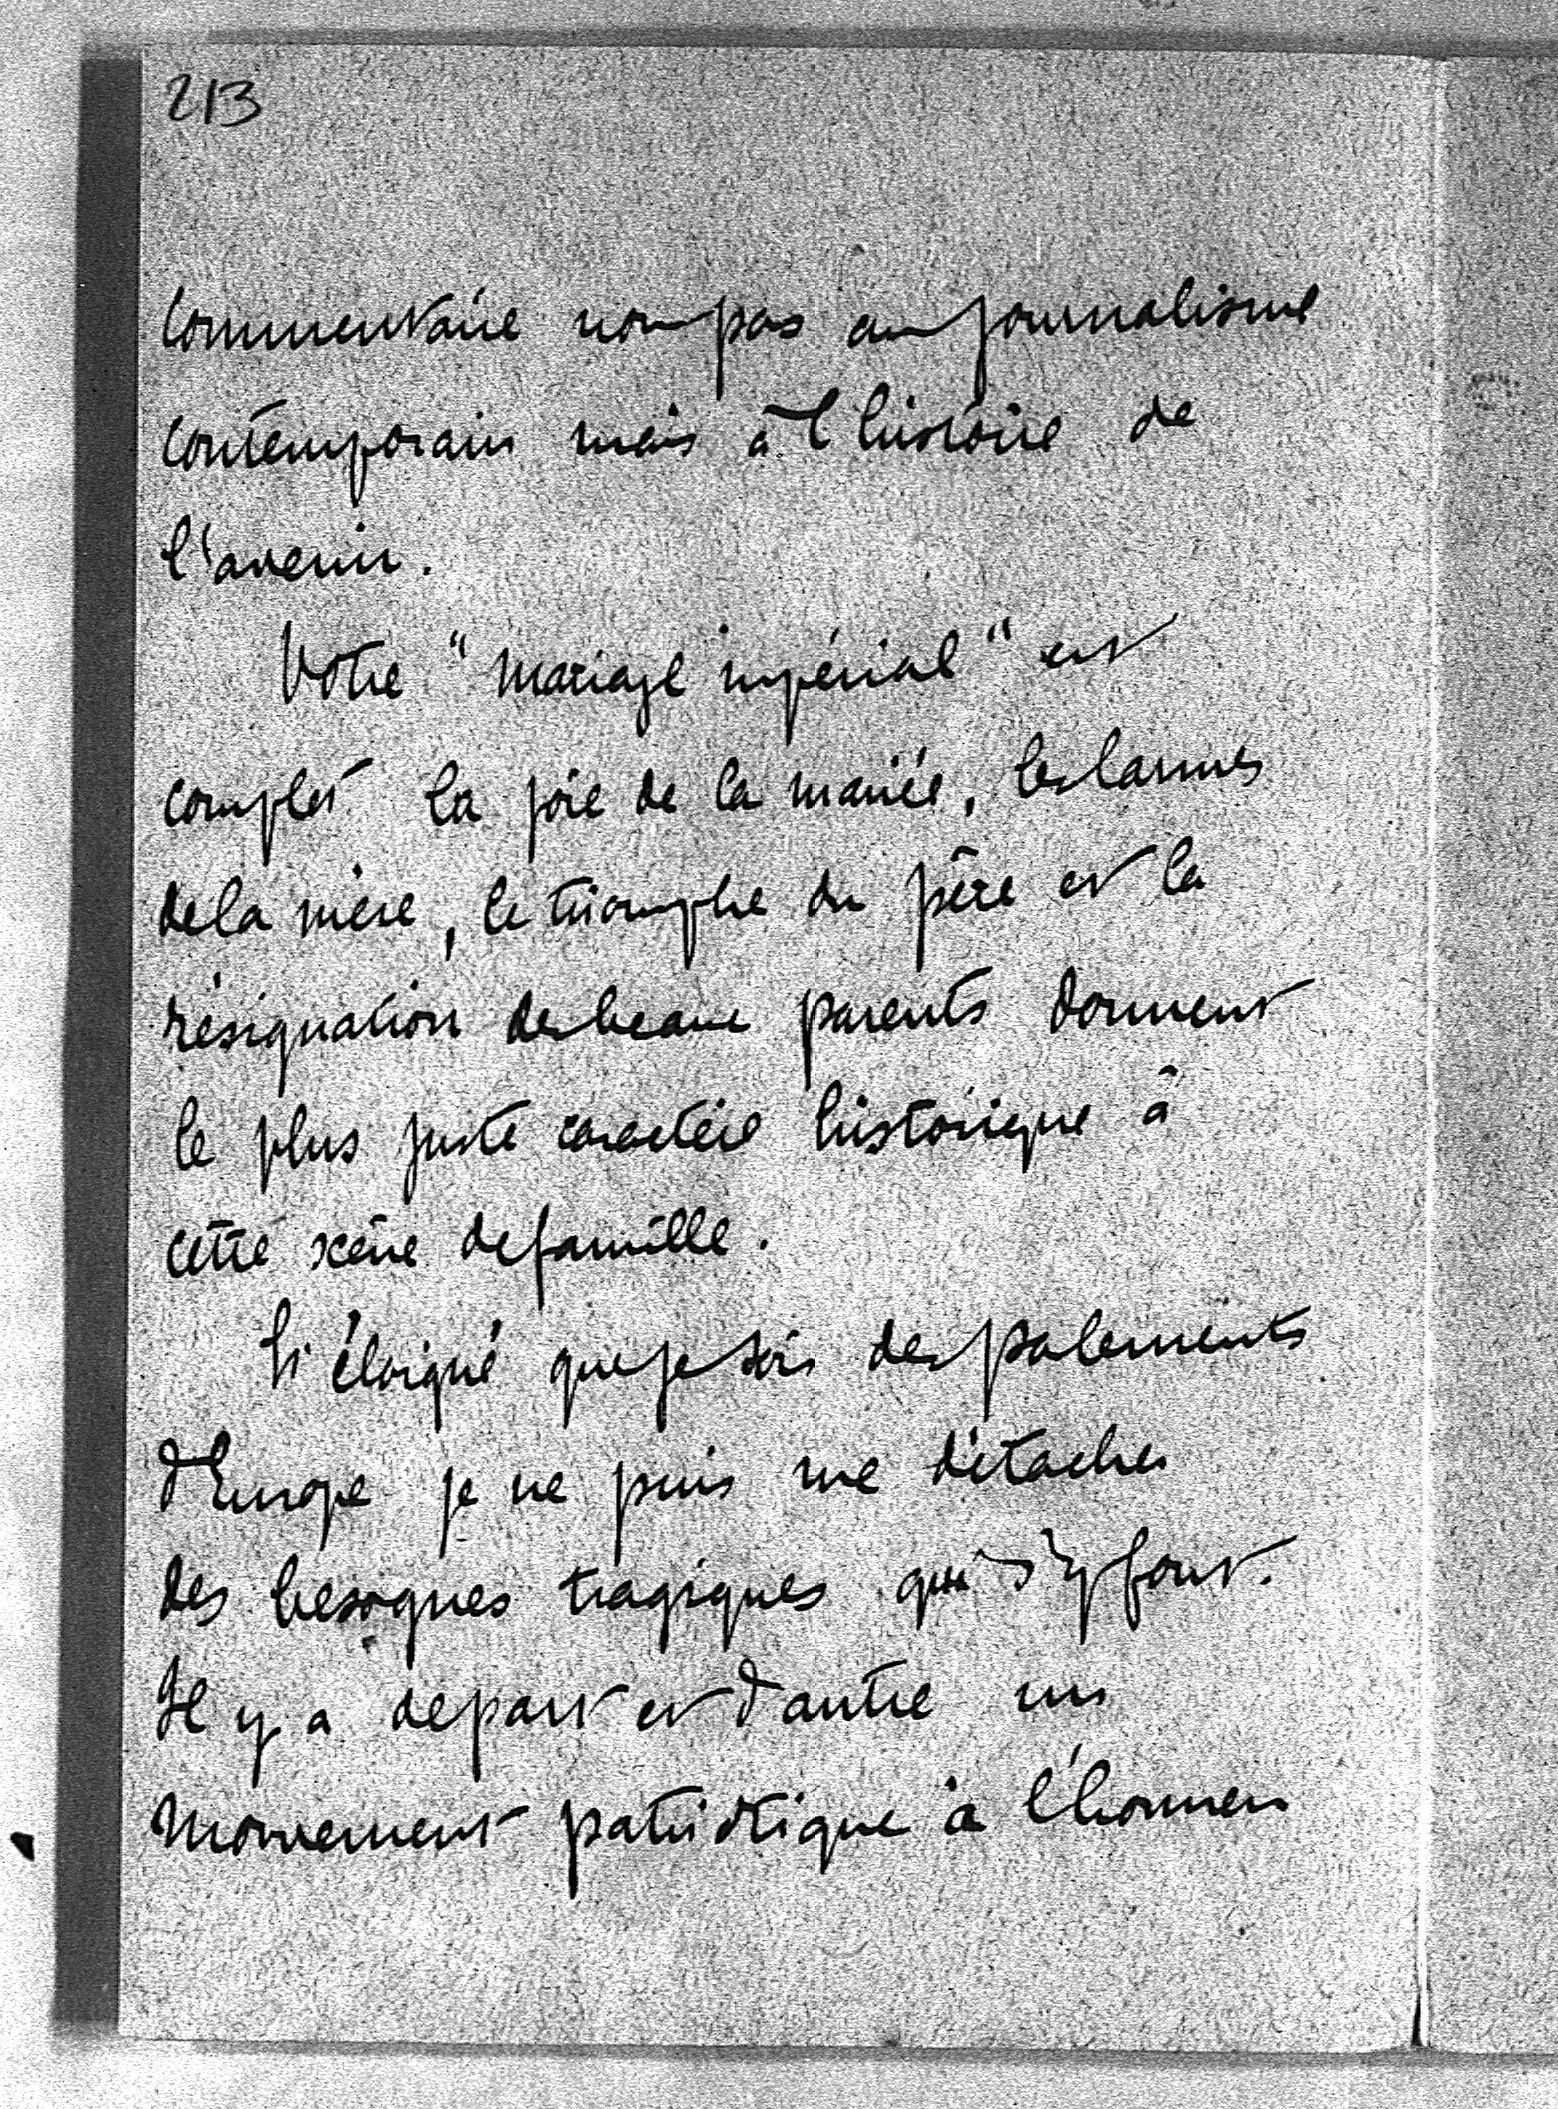 213
commentaire non pas au journalisme
contemporain mais à l'histoire de
l'avenir.
Votre "mariage impérial" est
complet la joie de la mariée, les larmes
de la mère, le triomphe du père et la
résignation des beaux parents donnent
le plus juste caractère historique à
cette scène de famille.
Si éloigné que je sois des parlements
d'Europe je ne puis me détacher
des besognes tragiques qui s'y font.
Il y a de part et d'autre un
mouvement patriotique à l'honneur